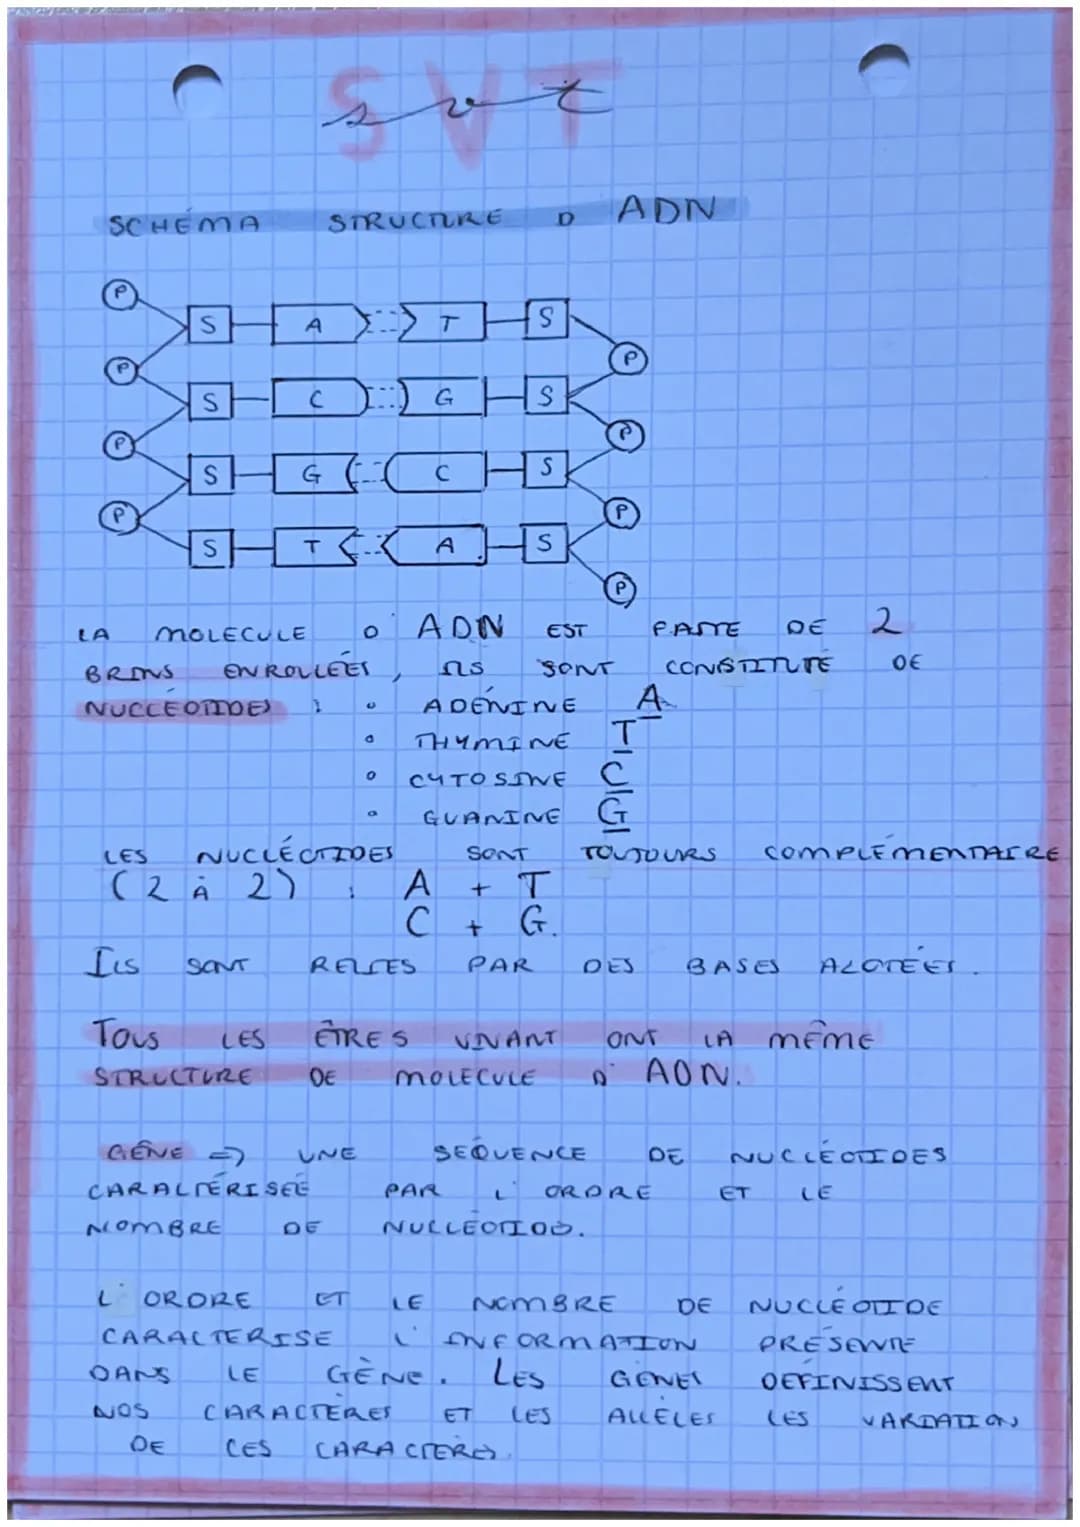 SVT
svt
SCHÉMA STRUCTURE D ADN
P
S A T S
P P
S C G S
P P
S G C S
P P
S T A S
P
LA MOLECULE D' ADN EST FAITE DE 2
BRINS ENROLLÉES, ILS SONT CONSTITUTÉ DE
NUCLÉOTIDES : • ADÉNINE A
• THYMINE T
• CYTOSINE C
• GUANINE G
LES NUCLÉOTIDES SONT TOUJOURS COMPLÉMENTAIRE
(2 À 2) : A + T
C + G.
ILS SONT RELIÉS PAR DES BASES AZOTÉES.
TOUS LES ÊTRES VIVANT ONT LA MÊME
STRUCTURE DE MOLECULE D' ADN.
GÊNE => UNE SÉQUENCE DE NUCLÉOTIDES
CARACTÉRISÉE PAR L' ORDRE ET LE
NOMBRE DE NUCLÉOTIDS.
L' ORDRE ET LE NOMBRE DE NUCLÉOTIDE
CARACTERISE L' INFORMATION PRÉSENTE
DANS LE GÈNE. LES GÈNES DÉFINISSENT
NOS CARACTÈRES ET LES ALLÈLES LES VARIATION
DE CES CARACTÈRES